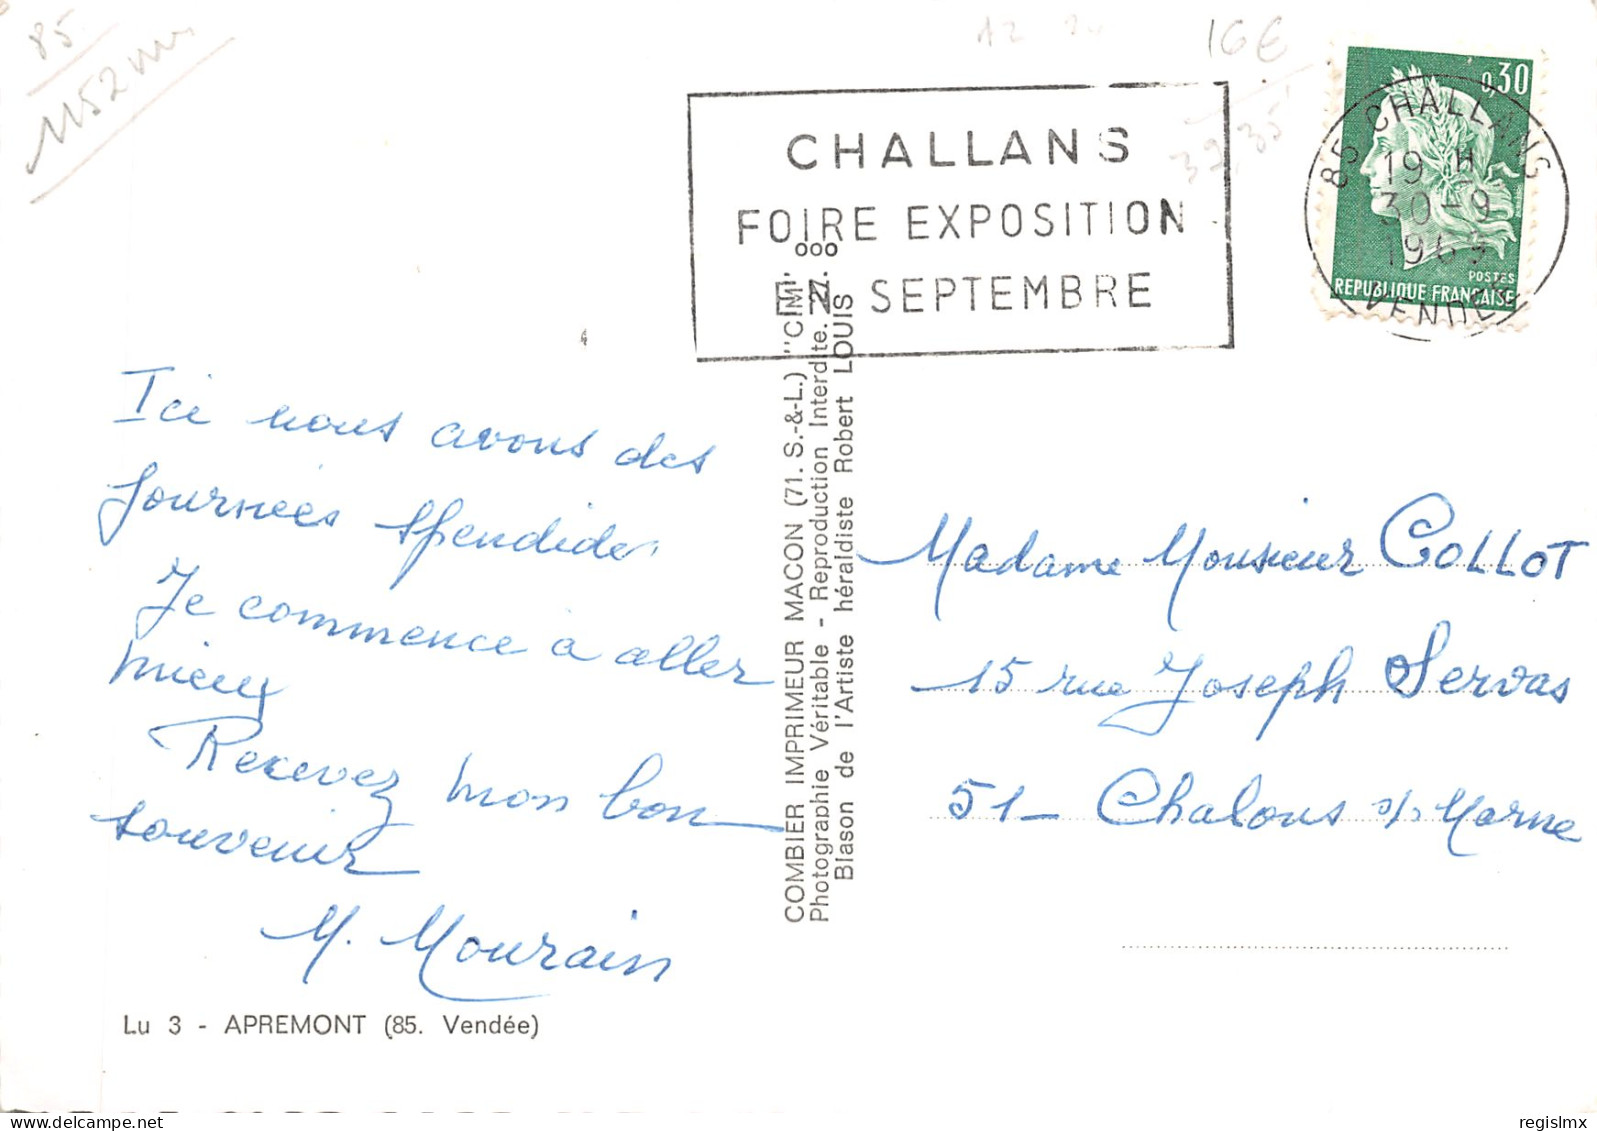 85
1152 m
16€
32,35
CHALLANS
FOIRE EXPOSITION
EN SEPTEMBRE
0,30
POSTES
REPUBLIQUE FRANÇAISE
85 CHALLANS
19 H
30 - 9
1969
VENDEE
Ici nous avons des
journées splendides
Je commence à aller
mieux
Recevez mon bon
souvenir
M. Mourain
Lu 3 - APREMONT (85. Vendée)
COMBIER IMPRIMEUR MACON (71. S.-&-L.) "CIM"
Photographie Véritable - Reproduction Interdite.
Blason de l'Artiste héraldiste Robert LOUIS
Madame Monsieur COLLOT
15 rue Joseph Servas
51 - Chalons s/ Marne
regislmx